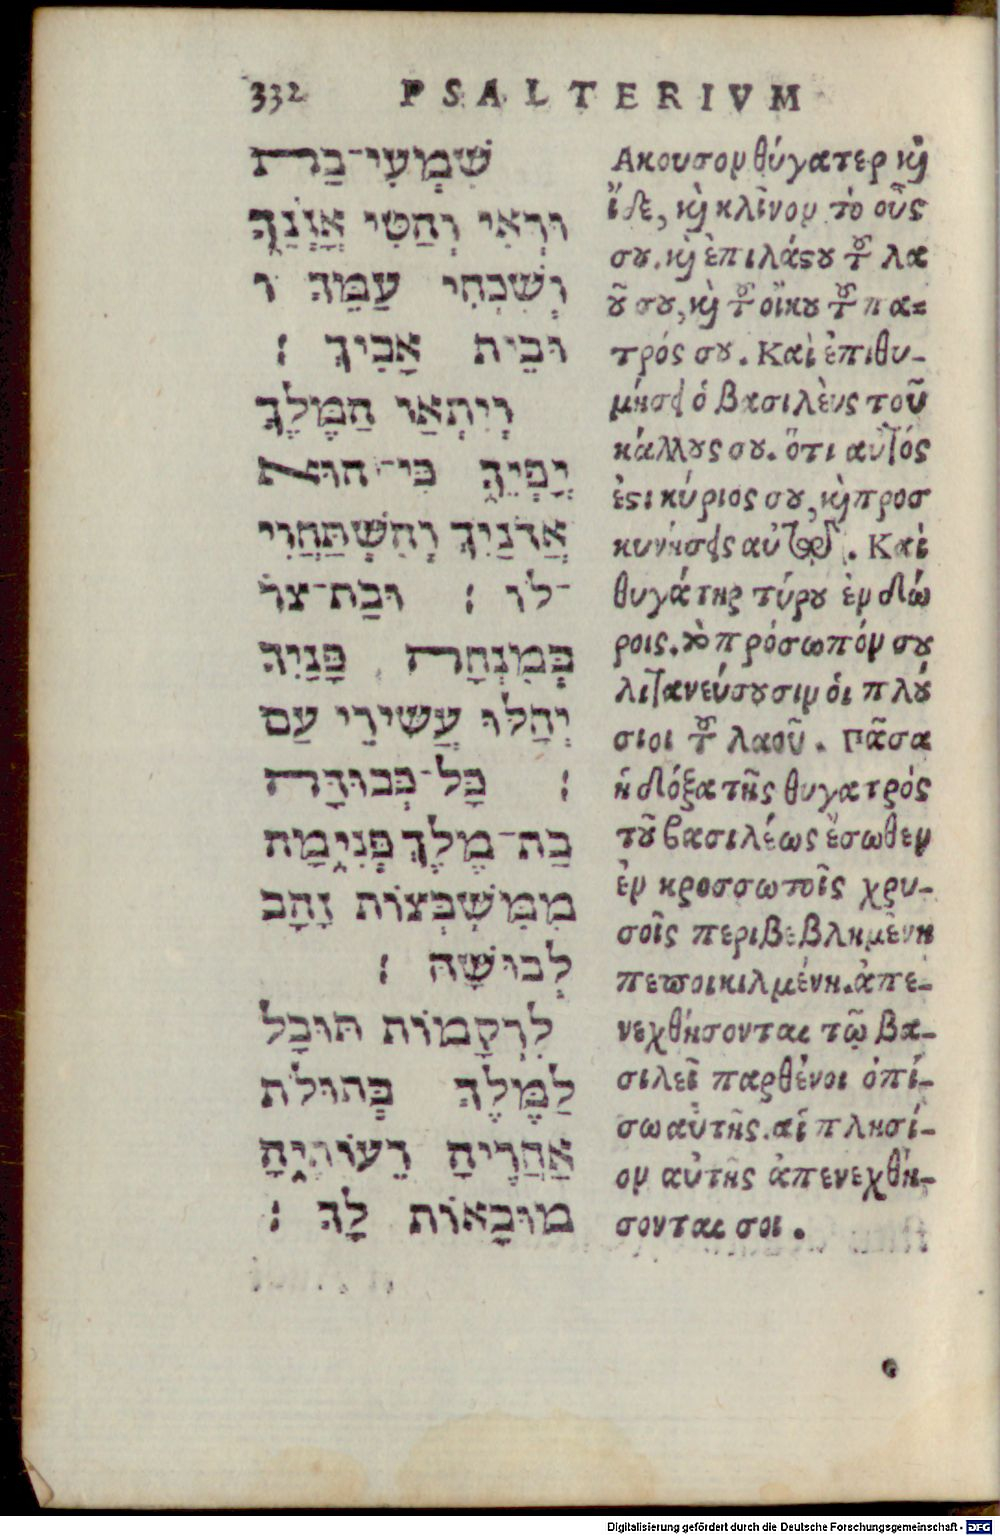 332 PSALTERIVM
שִׁמְעִי־בַת
וּרְאִי וְהַטִּי אָזְנֵךְ
וְשִׁכְחִי עַמֵּךְ ו
וּבֵית אָבִיךְ׃
וְיִתְאַו הַמֶּלֶךְ
יָפְיֵךְ כִּי־הוּא
אֲדֹנַיִךְ וְהִשְׁתַּחֲוִי
־לוֹ׃ וּבַת־צֹר
בְּמִנְחָה פָּנַיִךְ
יְחַלּוּ עֲשִׁירֵי עַם
׃ כָּל־כְּבוּדָּה
בַת־מֶלֶךְ פְּנִימָה
מִמִּשְׁבְּצוֹת זָהָב
לְבוּשָׁהּ׃
לִרְקָמוֹת תּוּבָל
לַמֶּלֶךְ בְּתוּלֹת
אַחֲרֶיהָ רֵעוֹתֶיהָ
מוּבָאוֹת לָךְ׃
Ακουσον θύγατερ κὶ
ἴδε, κὶ κλῖνον τὸ οὖς
σου. κὶ ἐπιλάθου τοῦ λα
οῦ σου, κὶ τοῦ οἴκου τοῦ πα=
τρός σου. Καὶ ἐπιθυ-
μήσει ὁ βασιλεὺς τοῦ
κάλλους σου. ὅτι αὐτός
ἐστι κύριος σου, κὶ προσ
κυνήσεις αὐτῷ. Καὶ
θυγάτηρ τύρου ἐν δώ
ροις. τὸ πρόσωπόν σου
λιτανεύσουσιν οἱ πλού
σιοι τοῦ λαοῦ. Πᾶσα
ἡ δόξα τῆς θυγατρὸς
τοῦ βασιλέως ἔσωθεν
ἐν κροσσωτοῖς χρυ-
σοῖς περιβεβλημένη
πεποικιλμένη. ἀπε-
νεχθήσονται τῷ βα-
σιλεῖ παρθένοι ὀπί-
σω αὐτῆς. αἱ πλησί-
ον αὐτῆς ἀπενεχθή-
σονται σοι.
Digitalisierung gefördert durch die Deutsche Forschungsgemeinschaft - DFG